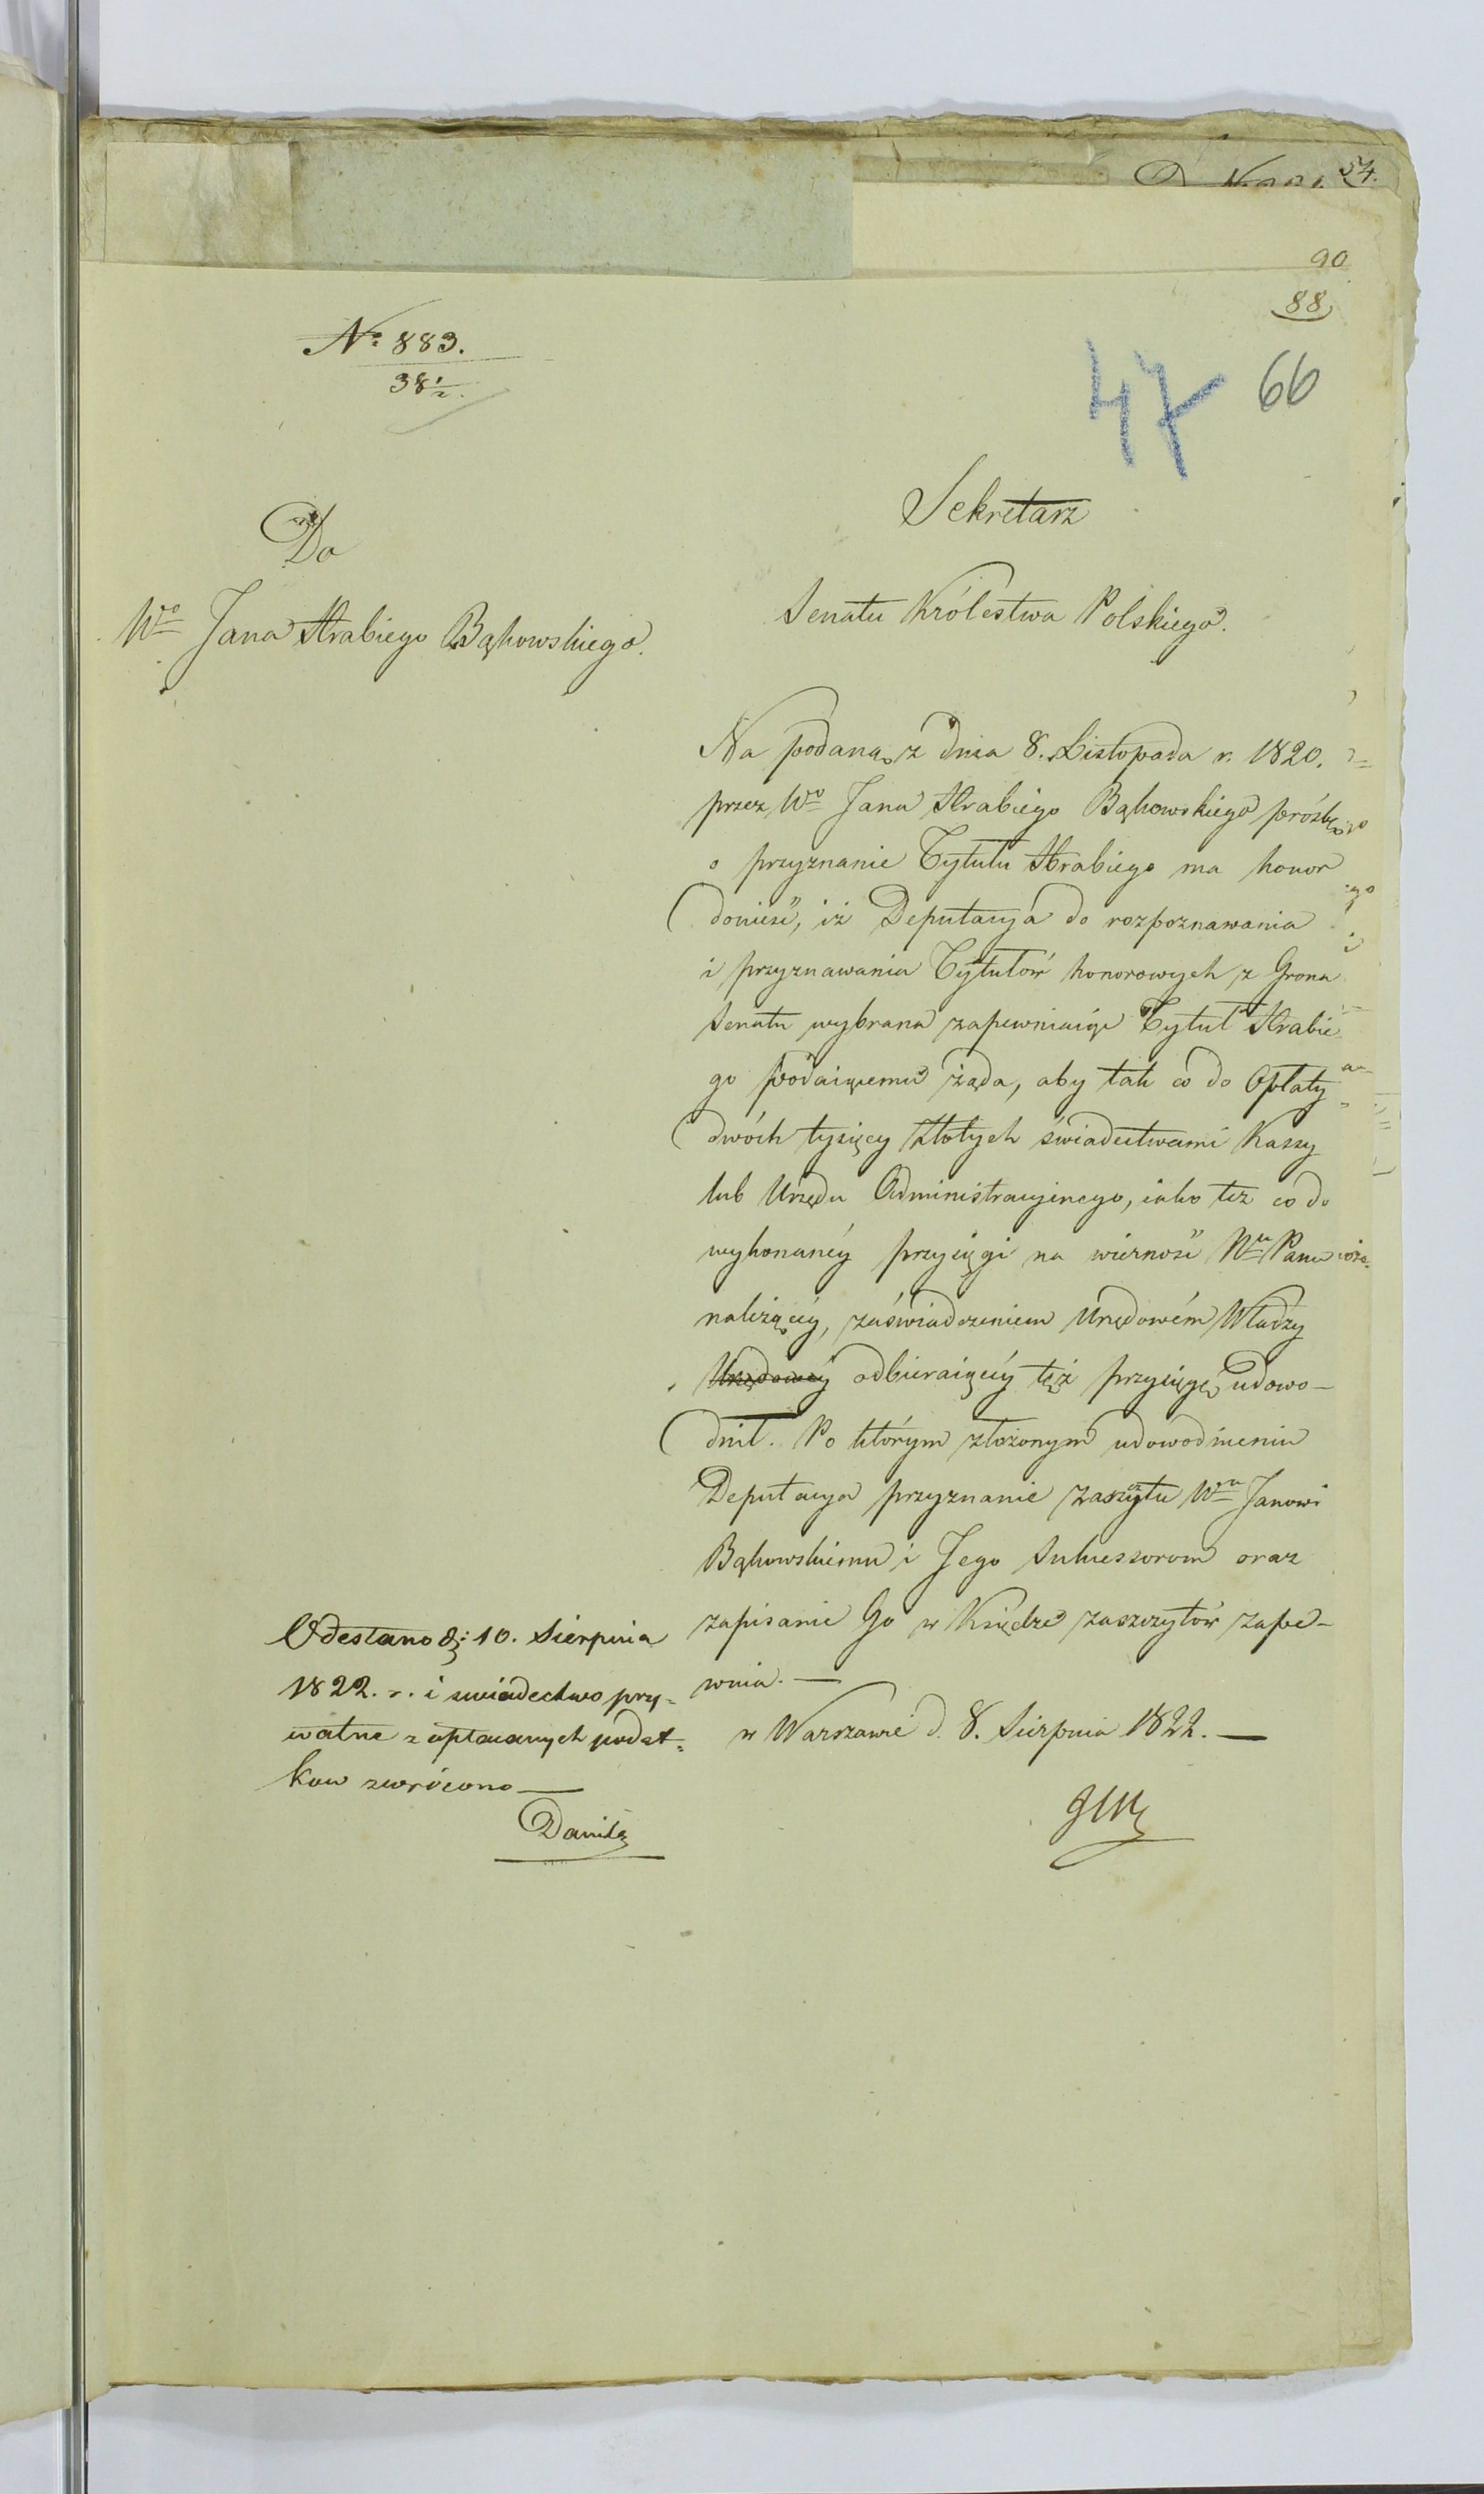 54.
90
88
47 66
Nº 883.
38 1/2.
Do
Wº Jana Hrabiego Bąkowskiego.
Sekretarz
Senatu Królestwa Polskiego.
Na podaną z dnia 8. Listopada r. 1820.
przez Wº Jana Hrabiego Bąkowskiego prósbę
o przyznanie Tytułu Hrabiego ma honor
donieść, iż Deputacya do rozpoznawania
i przyznawania Tytułów honorowych z Grona
Senatu wybrana zapewniaiąc Tytuł Hrabie
go podaiącemu żąda, aby tak co do Opłaty
dwóch tysięcy Złotych świadectwami Kassy
lub Urzędu Administracyinego, iako też co do
wykonanéy przysięgi na wierność Wmu Panu
należącéy, zaświadczeniem Urzędowém Władzy
Urzędowéy odbieraiącéy też przysięgę udowo-
dnił. Po którym złożonym udowodnieniu
Deputacya przyznanie zaszczytu Wmu Janowi
Bąkowskiemu i Jego Sukcessorom oraz
zapisanie Go w Księdze zaszczytów zape-
wnia. —
w Warszawie d. 8. Sierpnia 1822. —
Odesłano d: 10. Sierpnia
1822. r. i swiadectwo pry-
watne z opłacanych podat-
kow zwrócono —